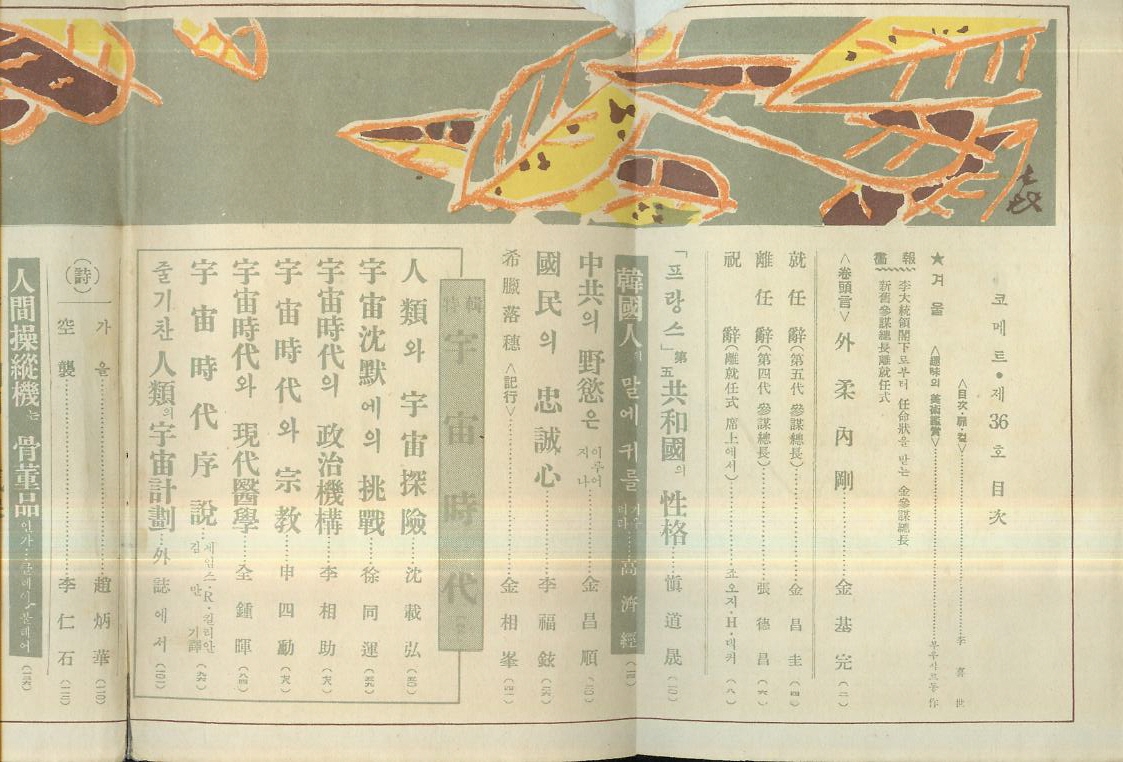 코메트·제36호 目次
<目次·題·컽>……李喜世
★겨울 <趣味의 美術鑑賞>……부우샤르동 作
報
李大統領閣下로부터 任命狀을 받는 金參謀總長
新舊參謀總長離就任式
<卷頭言> 外柔內剛……金基完(二)
就任辭(第五代 參謀總長)……金昌圭(四)
離任辭(第四代 參謀總長)……張德昌(六)
祝辭(離就任式 席上에서)……죠오지·H·데커(八)
「프랑스」第五共和國의 性格……愼道晟
韓國人의 말에 귀를 기우리다……高濟經
中共의 野慾은 이루어지나……金昌順
國民의 忠誠心……李福鉉
希臘落穗 <記行>……金相峯
特輯 宇宙時代
人類와 宇宙探險……沈載弘
宇宙沈默에의 挑戰……徐同運
宇宙時代의 政治機構……李相助
宇宙時代와 宗教……申四勳
宇宙時代와 現代醫學……全鍾暉
宇宙時代序說 제임스·R·길리안 김만기譯
줄기찬 人類의 宇宙計劃……外誌에서
(詩)
가을……趙炳華
空襲……李仁石
人間操縱機는 骨董品인가